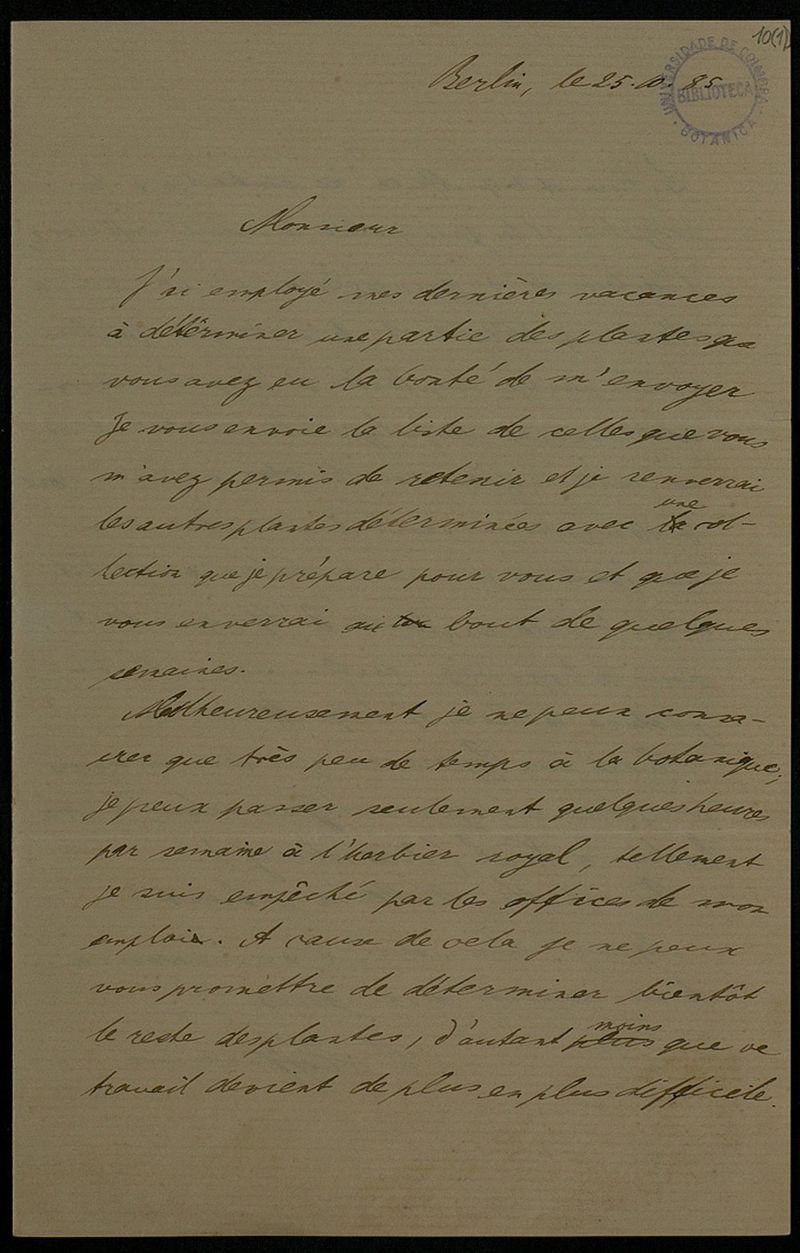 10(1)
Berlin, le 25.10.85
UNIVERSIDADE DE COIMBRA
BIBLIOTECA
BOTANICA
Monsieur
J'ai employé mes dernières vacances
à détêrminer une partie des plantes que
vous avez eu la bonté de m'envoyer
Je vous envoie la liste de celles que vous
m'avez permis de retenir et je renverrai
les autres plantes déterminées avec une col-
lection que je prépare pour vous et que je
vous enverrai au bout de quelques
semaines.
Malheureusement je ne peux consa-
crer que très peu de temps à la botanique;
je peux passer seulement quelques heures
par semaine à l'herbier royal, tellement
je suis empêché par les offices de mon
emploi. A cause de cela je ne peux
vous promettre de déterminer bientôt
le reste des plantes, d'autant moins que ce
travail devient de plus en plus difficile.